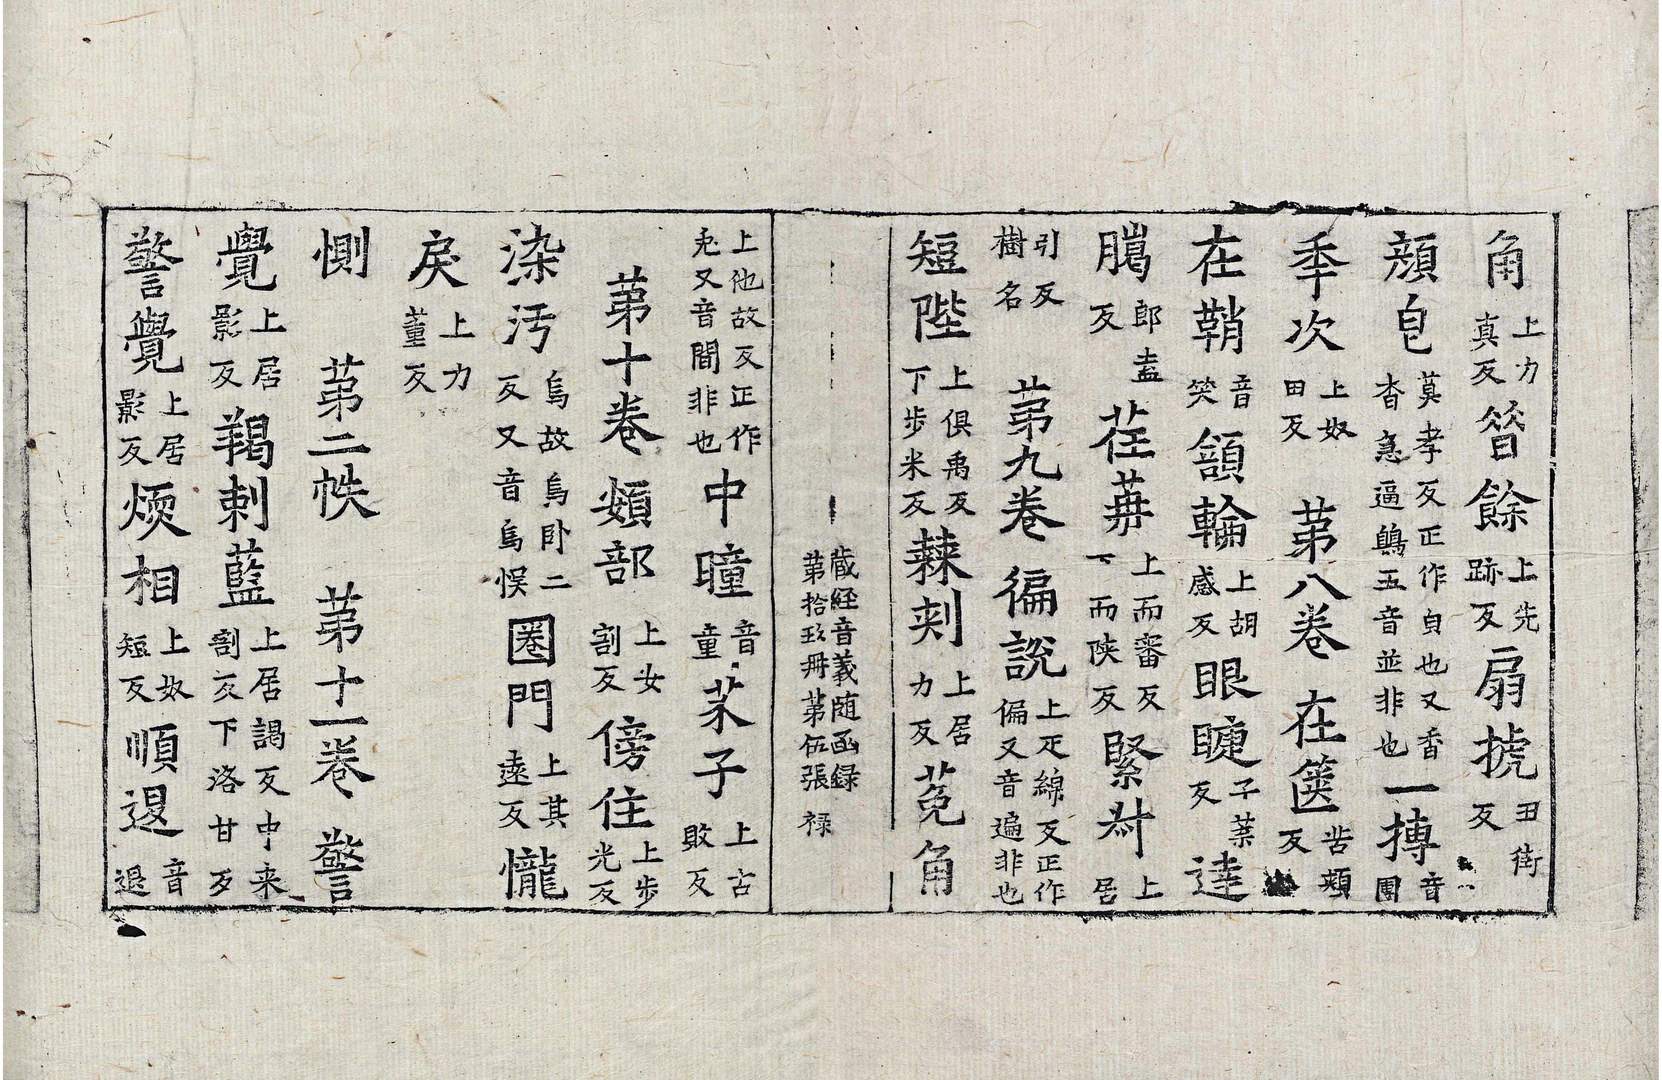 角上力真反簪餘上先跡反扇搋丑街反
顔皀莫孝反正作皃也又香杳急逼鵖五音並非也一摶音團
秊次上奴田反 第八卷 在篋苦頰反
在鞘音笑頷輪上胡感反眼睫子葉反逹
臈郎盍反荏苒上而審反下而陕反緊㪷上居
引反樹名 第九卷 徧説上疋綿反正作偏又音遍非也
短陛上俱禹反下步米反棘刾上居力反菟角
蔵経音義随函録第拾玖冊第伍張 禄
上他故反正作兎又音間非也中曈音童芣子上古敗反
第十卷 頞部上女割反傍住上步光反
染汚烏故烏卧二反又音烏悮圈門上其遠反㦕
戾上力董反
惻 第二帙 第十一卷 警
覺上居影反羯剌藍上居謁反中来割反下洛甘反
警覺上居影反煗相上奴短反順𨓤音退